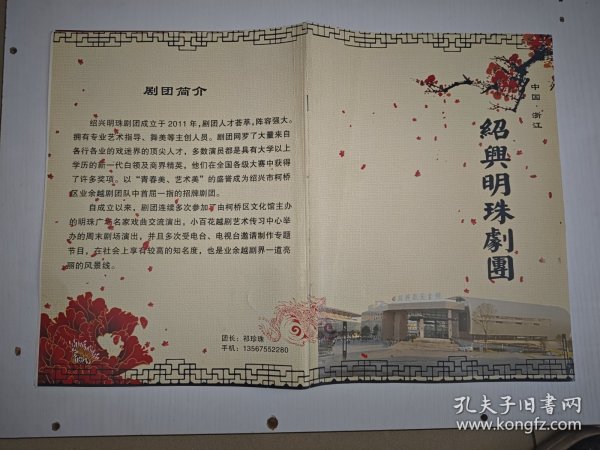 剧团简介
绍兴明珠剧团成立于2011年,剧团人才荟萃,阵容强大。
拥有专业艺术指导、舞美等主创人员。剧团网罗了大量来自
各行各业的戏迷界的顶尖人才,多数演员都是具有大学以上
学历的新一代白领及商界精英,他们在全国各级大赛中获得
了许多奖项。以“青春美、艺术美”的盛誉成为绍兴市柯桥
区业余越剧团队中首屈一指的招牌剧团。
自成立以来,剧团连续多次参加了由柯桥区文化馆主办
的明珠广场名家戏曲交流演出,小百花越剧艺术传习中心举
办的周末剧场演出,并且多次受电台、电视台邀请制作专题
节目,在社会上享有较高的知名度,也是业余越剧界一道亮
丽的风景线。
团长:祁珍珠
手机:13567552280
中国·浙江
紹興明珠劇團
孔夫子旧书网
www.kongfz.com